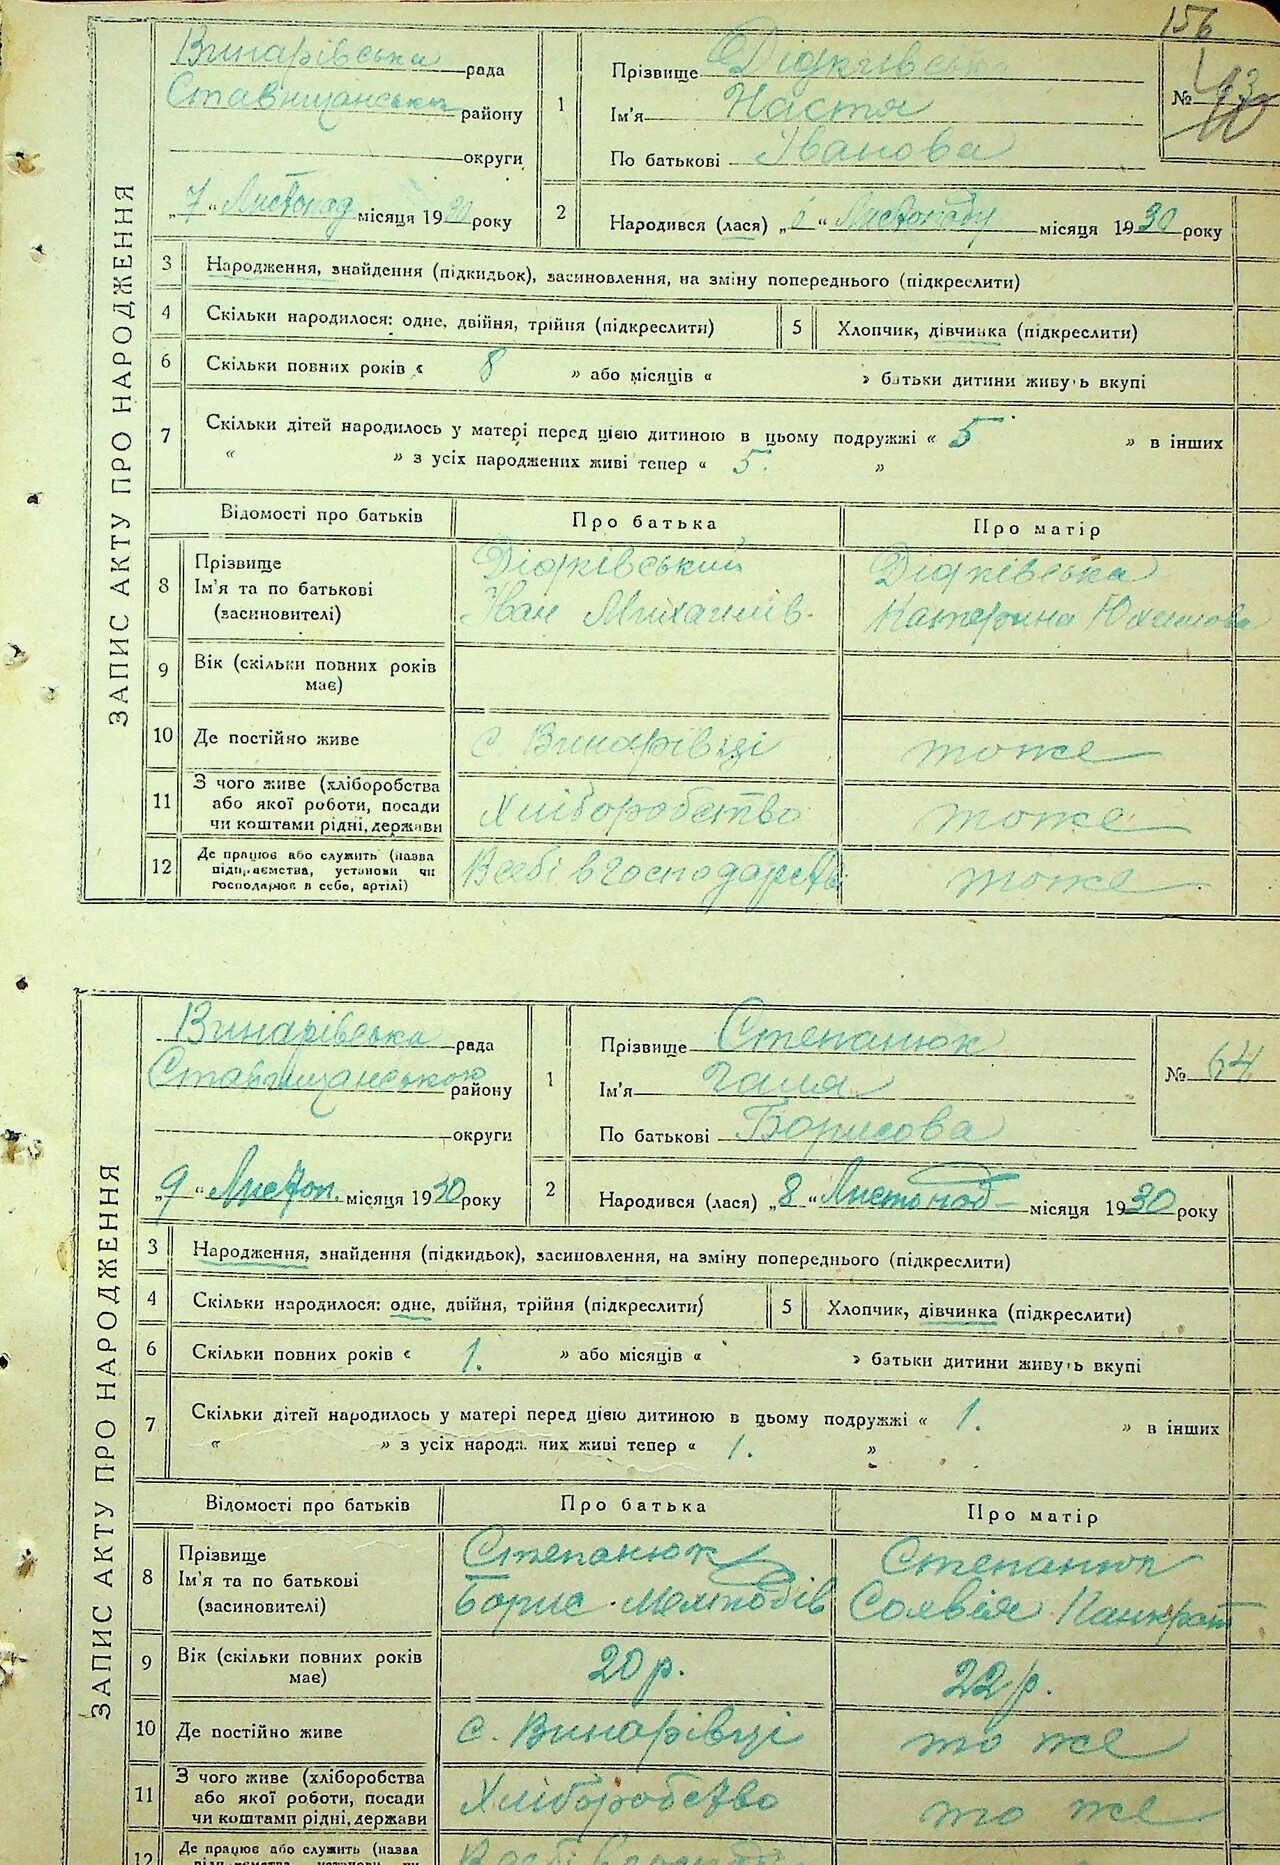 156
ЗАПИС АКТУ ПРО НАРОДЖЕННЯ
Винарівська рада
Ставищанськ району
округи
„7“ Листопад місяця 1930 року
1
Прізвище Дідківська
Ім'я Настя
По батькові Іванова
№
2
Народився (лася) „ “ Листопаду місяця 1930 року
3 Народження, знайдення (підкидьок), засиновлення, на зміну попереднього (підкреслити)
4 Скільки народилося: одне, двійня, трійня (підкреслити)
5 Хлопчик, дівчинка (підкреслити)
6 Скільки повних років « 8 » або місяців « » батьки дитини живуть вкупі
7 Скільки дітей народилось у матері перед цією дитиною в цьому подружжі « 5 » в інших
« » з усіх народжених живі тепер « 5. »
Відомості про батьків Про батька Про матір
8 Прізвище Ім'я та по батькові (засиновителі)
Дідківський
Іван Михайлів
Дідківська
Катерина Юхимова
9 Вік (скільки повних років має)
10 Де постійно живе с. Винарівці тоже
11 З чого живе (хліборобства або якої роботи, посади чи коштами рідні, держави
Хліборобство тоже
12 Де працює або служить (назва підприємства, установи чи господарює в себе, артілі)
В себі в господарстві тоже
ЗАПИС АКТУ ПРО НАРОДЖЕННЯ
Винарівська рада
Ставищанською району
округи
„9“ Листоп. місяця 1930 року
1
Прізвище Степанюк
Ім'я Галя
По батькові Борисова
№ 64
2
Народився (лася) „8“ Листопад місяця 1930 року
3 Народження, знайдення (підкидьок), засиновлення, на зміну попереднього (підкреслити)
4 Скільки народилося: одне, двійня, трійня (підкреслити)
5 Хлопчик, дівчинка (підкреслити)
6 Скільки повних років « 1. » або місяців « » батьки дитини живуть вкупі
7 Скільки дітей народилось у матері перед цією дитиною в цьому подружжі « 1. » в інших
« » з усіх народжених живі тепер « 1. »
Відомості про батьків Про батька Про матір
8 Прізвище Ім'я та по батькові (засиновителі)
Степанюк
Борис Мелтодів
Степанюк
Солвія Панкрат
9 Вік (скільки повних років має) 20 р. 22 р.
10 Де постійно живе с. Винарівці то же
11 З чого живе (хліборобства або якої роботи, посади чи коштами рідні, держави
Хліборобство то же
12 Де працює або служить (назва